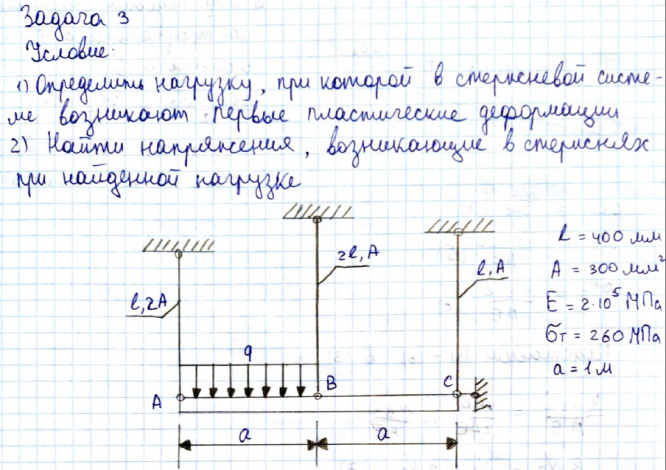 Задача 3
Условие:
1) Определить нагрузку, при которой в стержневой систе-
ме возникают первые пластические деформации
2) Найти напряжения, возникающие в стержнях
при найденной нагрузке
2l, A
l, 2A
l, A
l = 400 мм
A = 300 мм²
E = 2·10⁵ МПа
σт = 260 МПа
a = 1 м
q
A
B
C
a
a